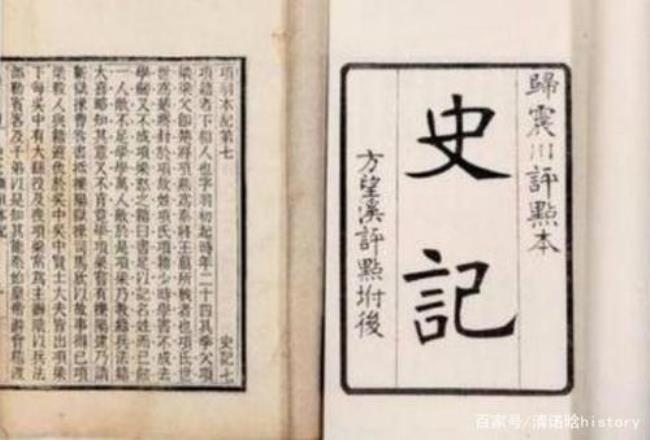 歸震川評點本
史記
方望溪評點坿後
項羽本紀第七 史記七
項籍者下相人也字羽初起時年二十四其季父項
梁梁父卽楚將項燕爲秦將王翦所戮者也項氏世
世爲楚將封於項故姓項氏項籍少時學書不成去
學劍又不成項梁怒之籍曰書足以記名姓而已劍
一人敵不足學學萬人敵於是項梁乃敎籍兵法籍
大喜略知其意又不肯竟學項梁嘗有櫟陽逮乃請
蘄獄掾曹咎書抵櫟陽獄掾司馬欣以故事得已項
梁殺人與籍避仇於吳中吳中賢士大夫皆出項梁
下每吳中有大繇役及喪項梁常爲主辦陰以兵法
部勒賓客及子弟以是知其能秦始皇帝游會稽渡
百家号/清诺晗history